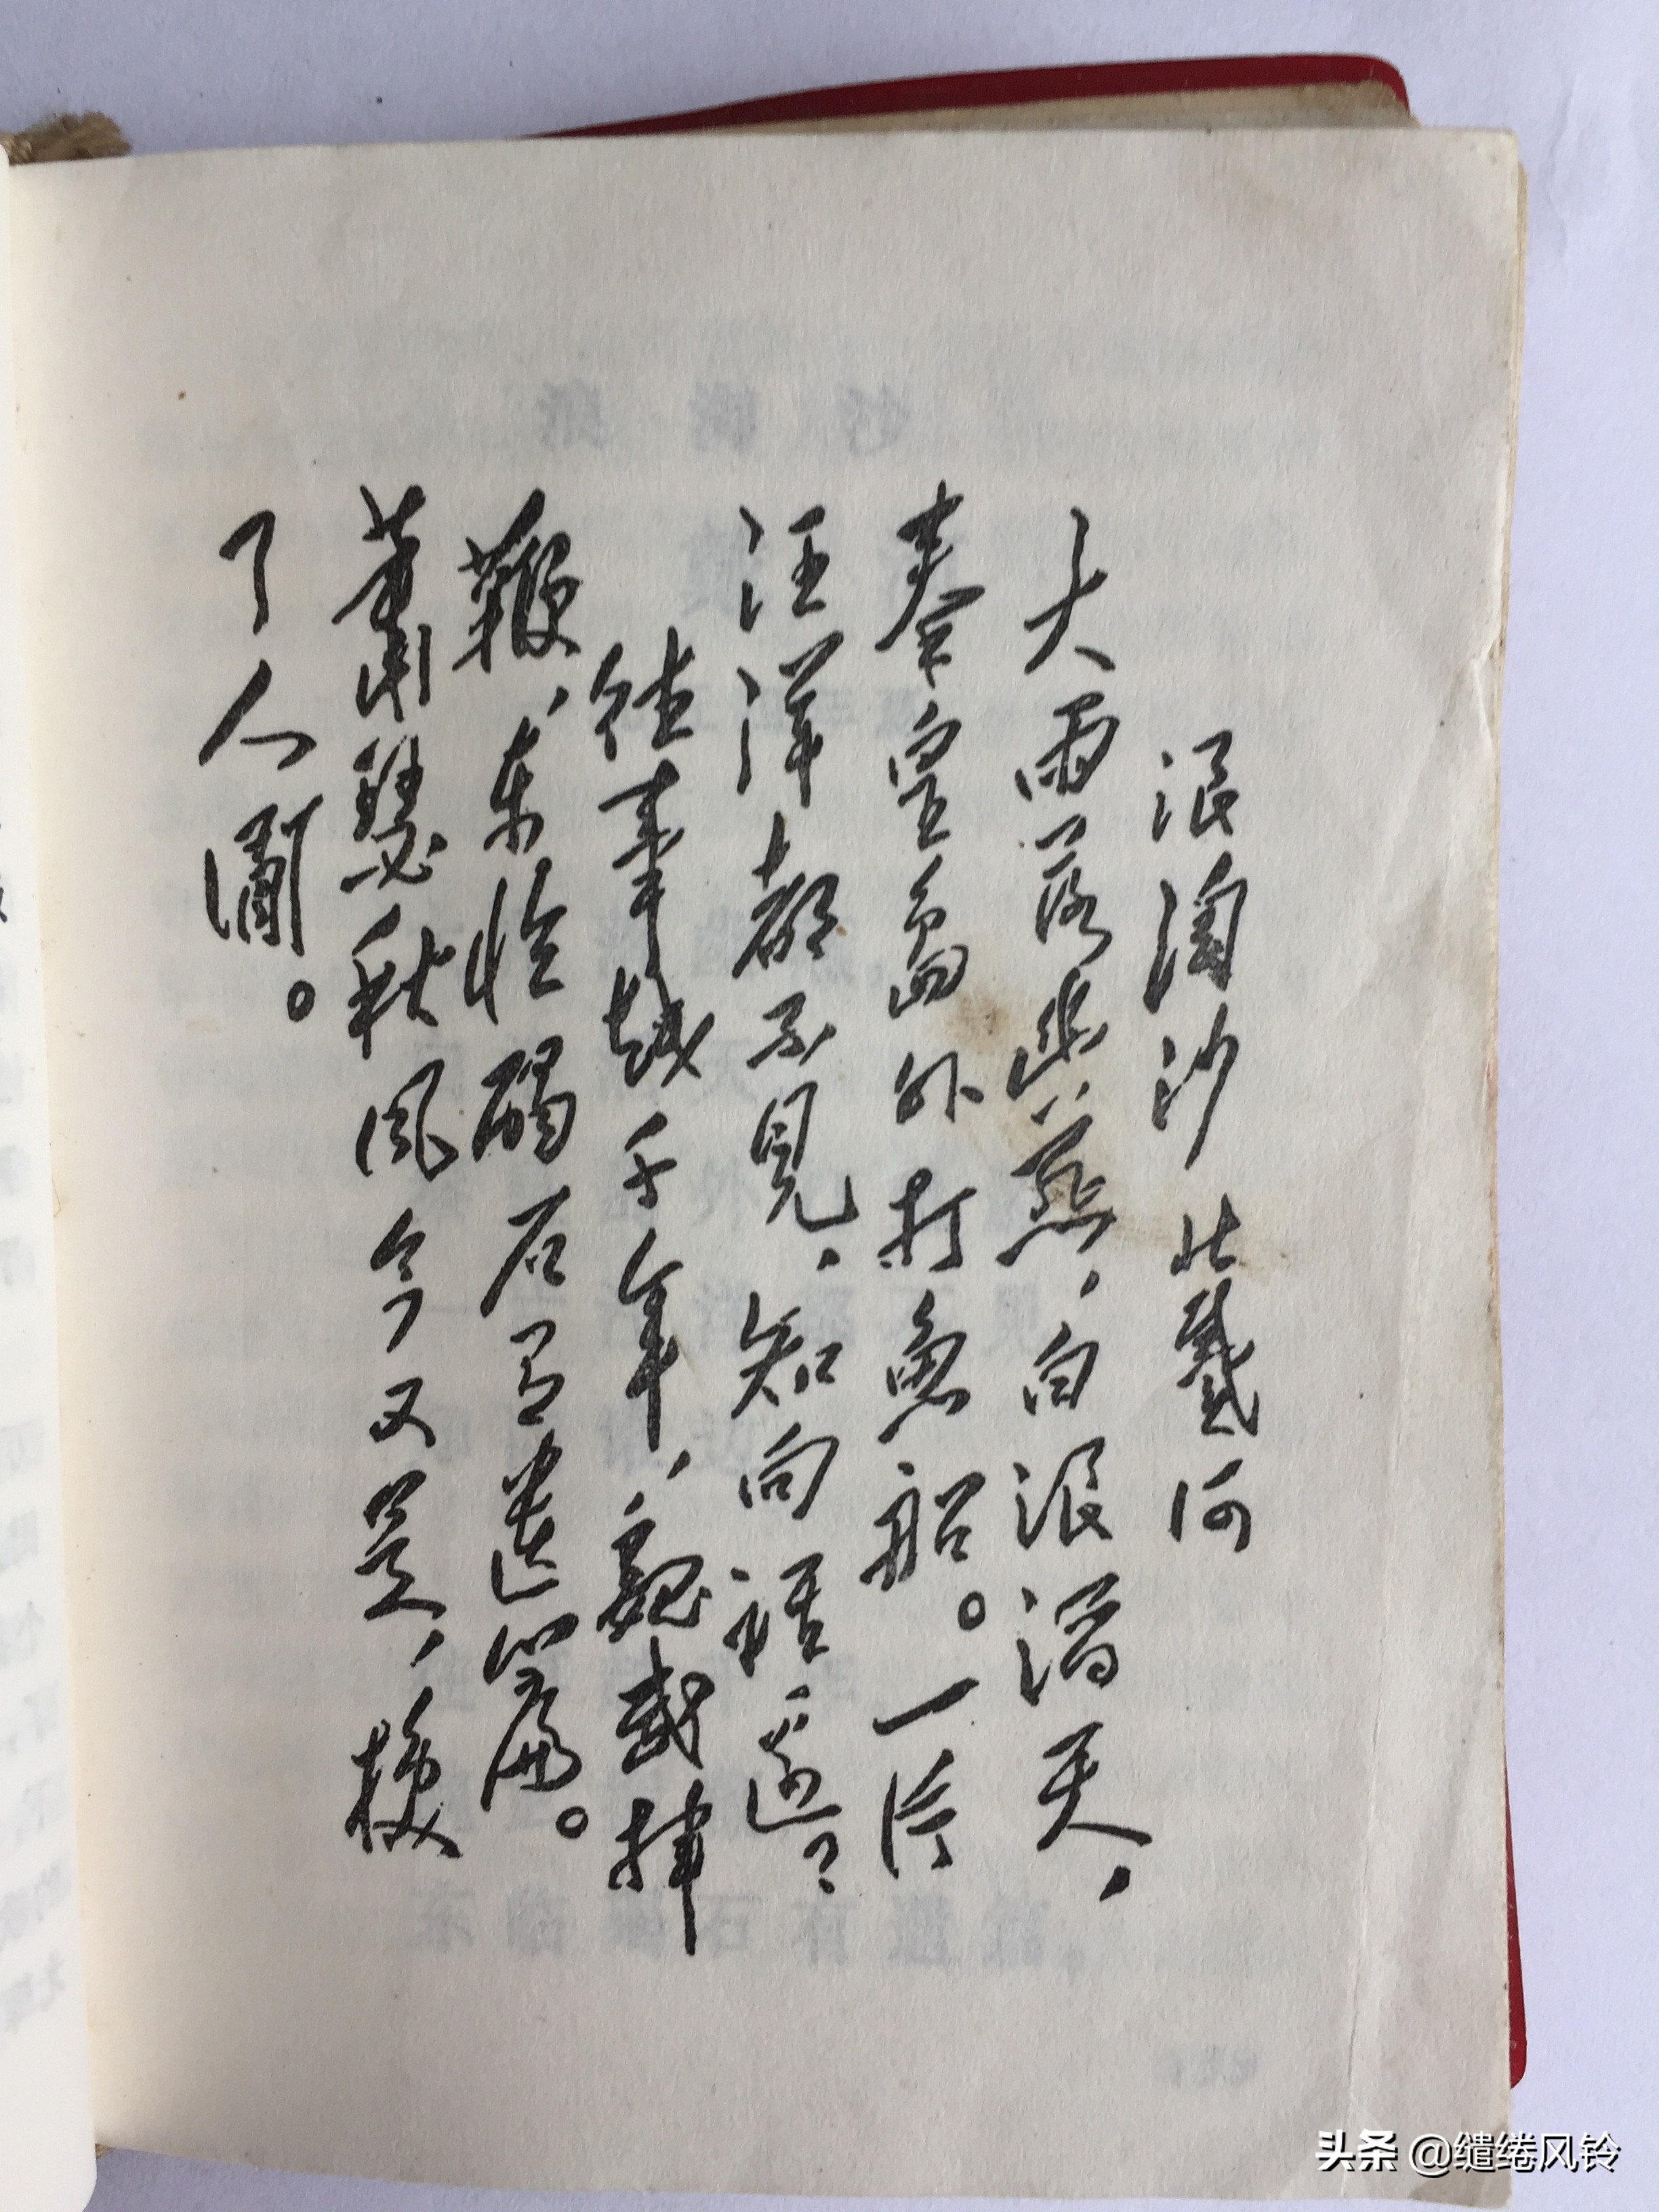 浪淘沙 北戴河
大雨落幽燕，白浪滔天，
秦皇島外打魚船。一片
汪洋都不見，知向誰邊？
往事越千年，魏武揮
鞭，東临碣石有遺篇。
蕭瑟秋風今又是，換
了人間。
头条 @缱绻风铃